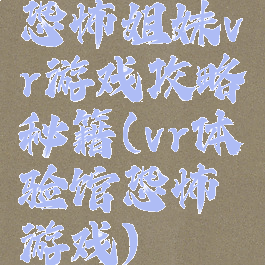 恐怖姐妹v
r游戏攻略
秘籍(vr体
验馆恐怖
游戏)